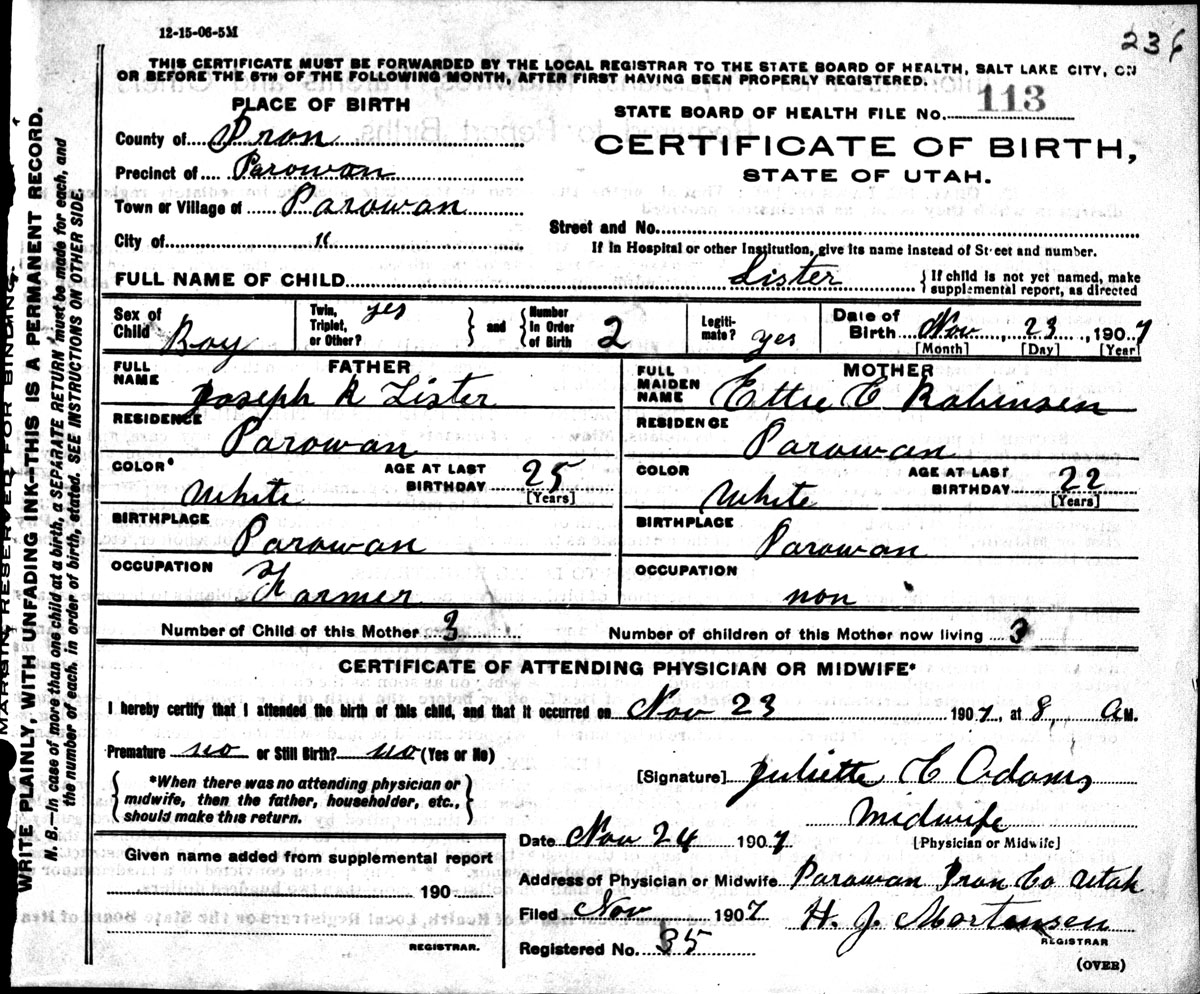 12-15-06-5M
236
THIS CERTIFICATE MUST BE FORWARDED BY THE LOCAL REGISTRAR TO THE STATE BOARD OF HEALTH, SALT LAKE CITY, ON
OR BEFORE THE 5TH OF THE FOLLOWING MONTH, AFTER FIRST HAVING BEEN PROPERLY REGISTERED.
PLACE OF BIRTH
STATE BOARD OF HEALTH FILE No. 113
County of Iron
CERTIFICATE OF BIRTH,
Precinct of Parowan
STATE OF UTAH.
Town or Village of Parowan
Street and No.
City of "
If in Hospital or other Institution, give its name instead of Street and number.
FULL NAME OF CHILD Lister { If child is not yet named, make supplemental report, as directed
Sex of Child Boy Twin, Triplet, or Other? yes } and { Number in Order of Birth 2 Legiti-mate? yes Date of Birth Nov, 23, 1907
[Month] [Day] [Year]
FATHER
MOTHER
FULL NAME Joseph R Lister
FULL MAIDEN NAME Ettie E Robinsen
RESIDENCE Parowan
RESIDENCE Parowan
COLOR* White AGE AT LAST BIRTHDAY 25 [Years]
COLOR White AGE AT LAST BIRTHDAY 22 [Years]
BIRTHPLACE Parowan
BIRTHPLACE Parowan
OCCUPATION Farmer
OCCUPATION non
Number of Child of this Mother 3 Number of children of this Mother now living 3
CERTIFICATE OF ATTENDING PHYSICIAN OR MIDWIFE*
I hereby certify that I attended the birth of this child, and that it occurred on Nov 23 1907, at 8, A M.
Premature no or Still Birth? no (Yes or No)
{ *When there was no attending physician or
midwife, then the father, householder, etc.,
should make this return. }
[Signature] Juliette C Adams
Midwife
[Physician or Midwife]
Date Nov 24 1907
Given name added from supplemental report
190
REGISTRAR.
Address of Physician or Midwife Parowan Iron Co Utah
Filed Nov 1907 H. J. Mortensen
REGISTRAR
Registered No. 35
(OVER)
MARGIN RESERVED FOR BINDING.
WRITE PLAINLY, WITH UNFADING INK—THIS IS A PERMANENT RECORD.
N. B.—In case of more than one child at a birth, a SEPARATE RETURN must be made for each, and
the number of each, in order of birth, stated. SEE INSTRUCTIONS ON OTHER SIDE.